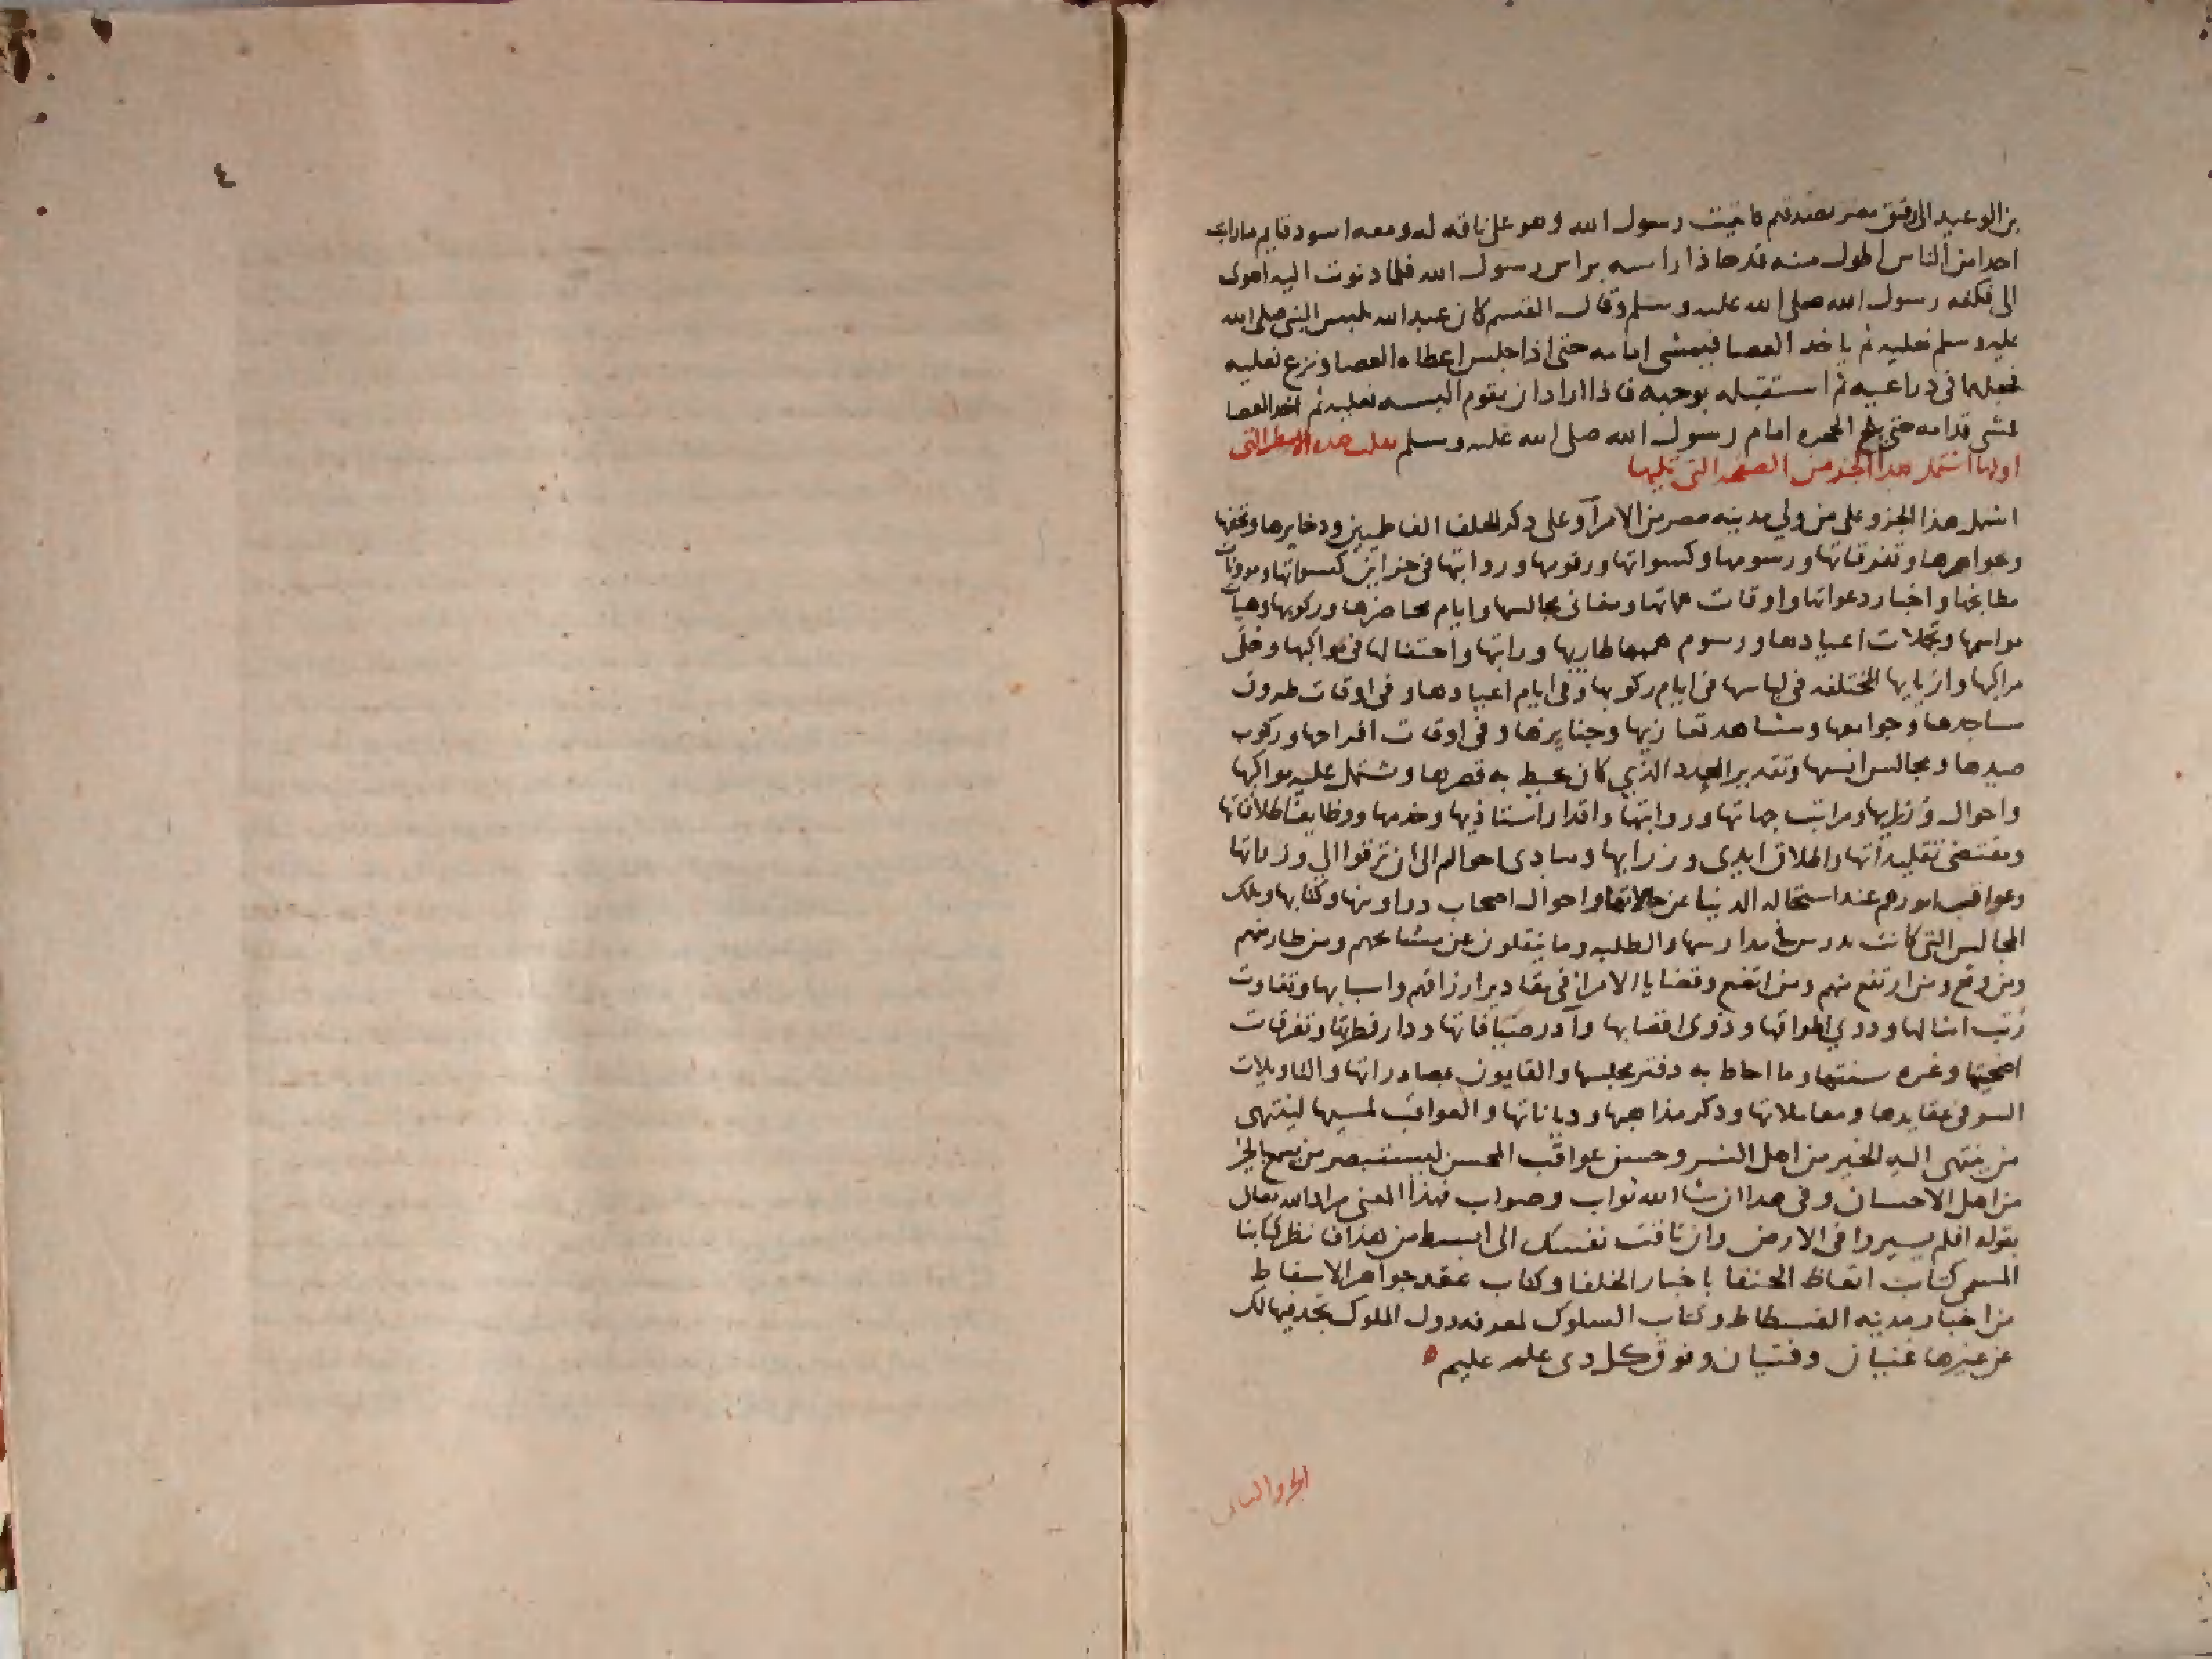 ٤
احدا من الناس اطول منه قد حاذا راسه براس رسول الله فلما دنوت اليه اهوى
الى فكفه رسول الله صلى الله عليه وسلم وقال القسم كان عبد الله يلبس النبي صلى الله
عليه وسلم نعليه ثم ياخذ العصا فيمشي امامه حتى اذا جلس اعطاه العصا ونزع نعليه
فجعلهما في ذراعيه ثم استقبله بوجهه فاذا اراد ان يقوم البسه نعليه ثم اخذ العصا
فمشى قدامه حتى يلج الحجره امام رسول الله صلى الله عليه وسلم
اولها اشتمل هذا الجزو من الصفحه التي تليها
اشتمل هذا الجزو على من ولي مدينه مصر من الامرآ وعلى ذكر الخلفا الفاطميين وذخايرها وتحفها
وجواهرها وتفرقاتها ورسومها وكسواتها ورقومها ورواتبها في خزاين كسواتها
مطابخها واخبار دعواتها واوقات ومغاني مجالسها وايام محاضرها وركوبها وهيآت
مواسمها وتجملات اعيادها ورسوم واحتفالها في مواكبها وحلى
مراكبها وازيايها المختلفه في لباسها في ايام ركوبها وفي ايام اعيادها وفي اوقات طروق
مساجدها وجوامعها ومشاهد تعازيها وجنايزها وفي اوقات افراحها وركوب
صيدها ومجالس انسها وتقدير العدد الذي كان يحيط به قصرها وتشتمل عليه مواكبها
واحوال وزرايها ومراتب جهاتها ورواتبها واقدار استاذيها وخدمها ووظايف اطلاقاتها
ومقتضى تقليداتها واطلاق ايدي وزرايها ومبادى احوالهم الى ان ترقوا الى وزراتها
وعواقب امورهم عند استحاله الدنيا عن حالاتها واحوال اصحاب دواوينها وكتابها وتلك
المجالس التي كانت مدارسها والطلبه وما ينقلون عن مشايخهم ومن طار منهم
ومن وقع ومن ارتفع منهم ومن اتضع وقضايا الامرا في مقادير ارزاقهم واسبابها وتفاوت
رتب امثالها وذوي اطواقها وذوى اقضابها وآدر ضيافاتها ودار فطرتها وتفرقات
اضحيتها وغره سنتها وما احاط به دفتر مجلسها والقايون بمصادراتها والتاويلات
السو في عقايدها ومعاملاتها وذكر مذاهبها ودياناتها والعواقب لمسيها لينتهي
من ينتهي اليه الخبر من اهل الشر وحسن عواقب المحسن ليستبصر من يسمع الخبر
من اهل الاحسان وفي هذا ان شا الله ثواب وصواب فهذا المعنى مراد الله تعالى
بقوله افلم يسيروا في الارض وان تاقت نفسك الى ابسط من هذا فانظر كتابنا
المسمى كتاب اتعاظ الحنفا باخبار الخلفا وكتاب عقد جواهر الاسفاط
من اخبار مدينه الفسطاط وكتاب السلوك لمعرفه دول الملوك تجد فيها لك
عن غيرها غنيان وفتيان وفوق كل ذي علم عليم